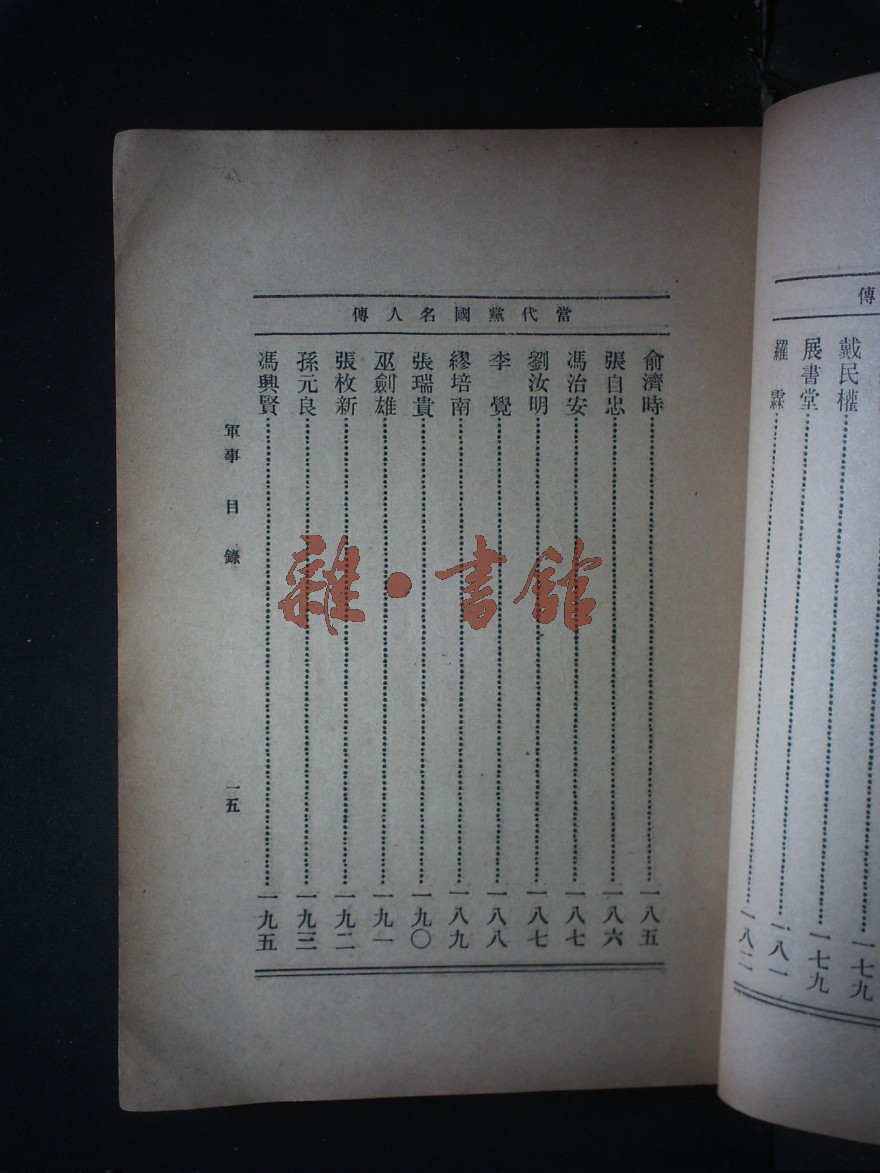 傳
戴民權……一七九
展書堂……一七九
羅霖……一八一
一八二
當代黨國名人傳
俞濟時……一八五
張自忠……一八六
馮治安……一八七
劉汝明……一八七
李覺……一八八
繆培南……一八九
張瑞貴……一九〇
巫劍雄……一九一
張枚新……一九二
孫元良……一九三
馮興賢……一九五
軍事 目錄 一五
雜·書館